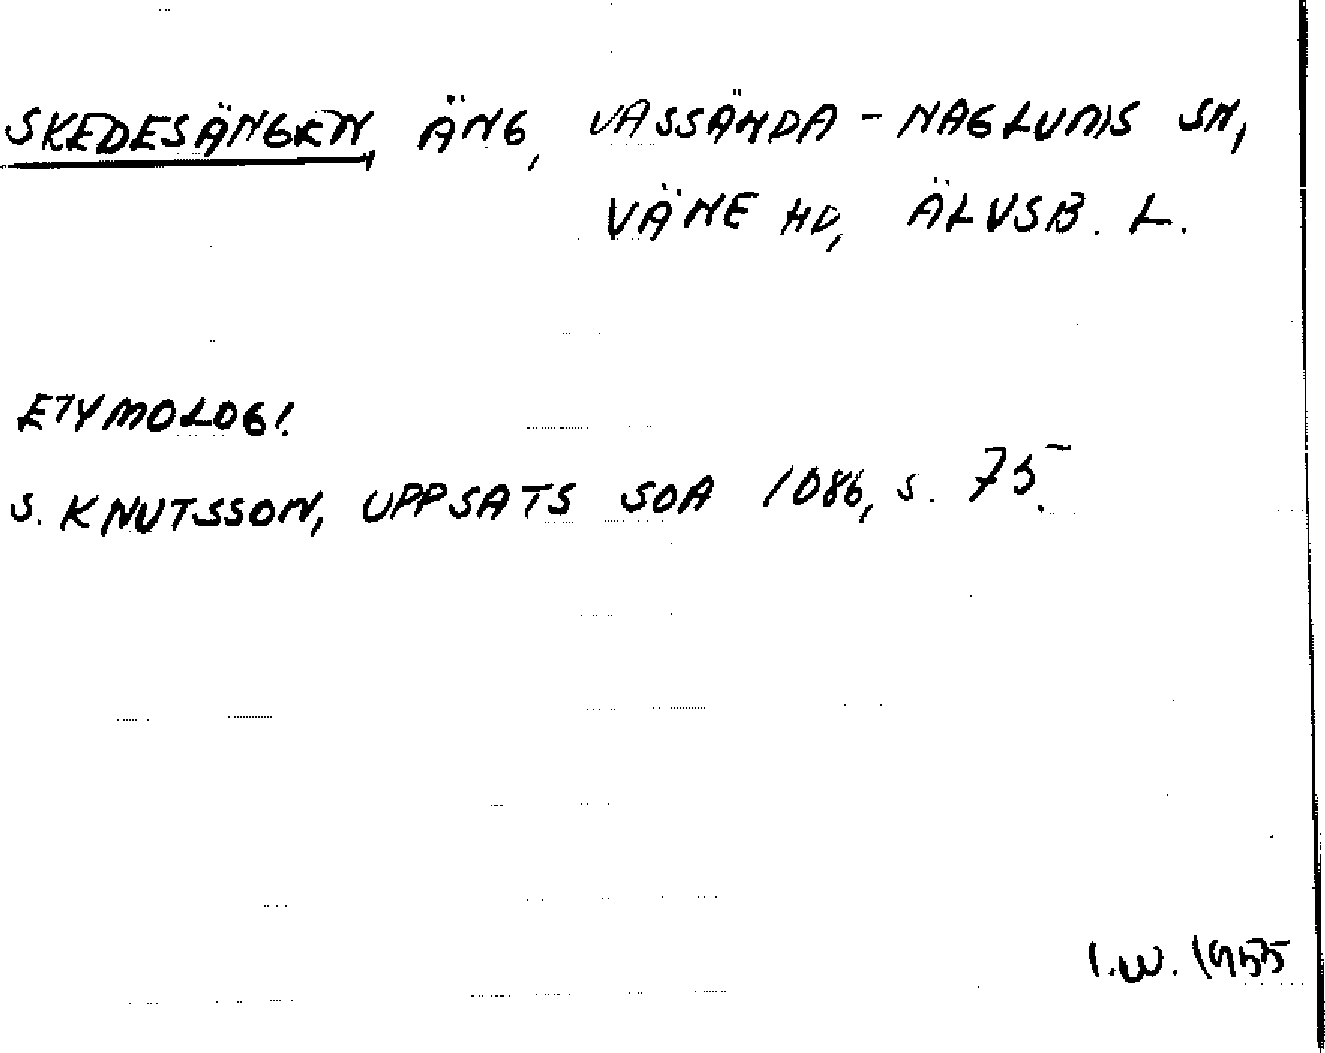 SKEDESÄNGEN, ÄNG, VASSÄNDA - NAGLUMS SN,
VÄNE HD, ÄLVSB. L.
ETYMOLOGI.
S. KNUTSSON, UPPSATS SOA 1086, S. 75.
I.W. 1955